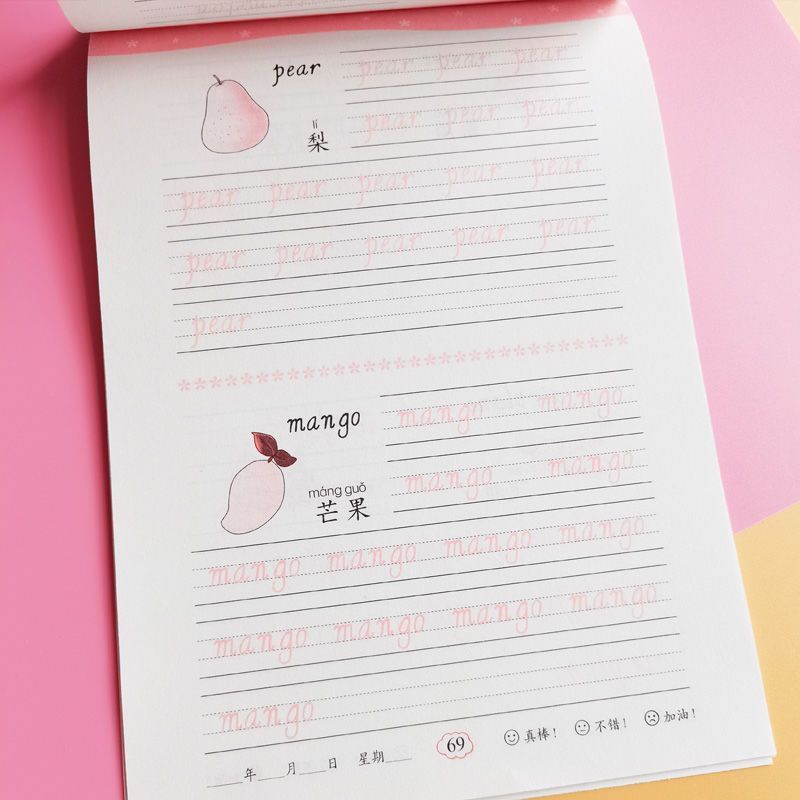 pear pear pear pear
lí
梨 pear pear pear
pear pear pear pear pear
pear pear pear pear pear
pear
mango mango mango
máng guǒ
芒果 mango mango
mango mango mango mango
mango mango mango mango
mango
年 月 日 星期 69 真棒! 不错! 加油!